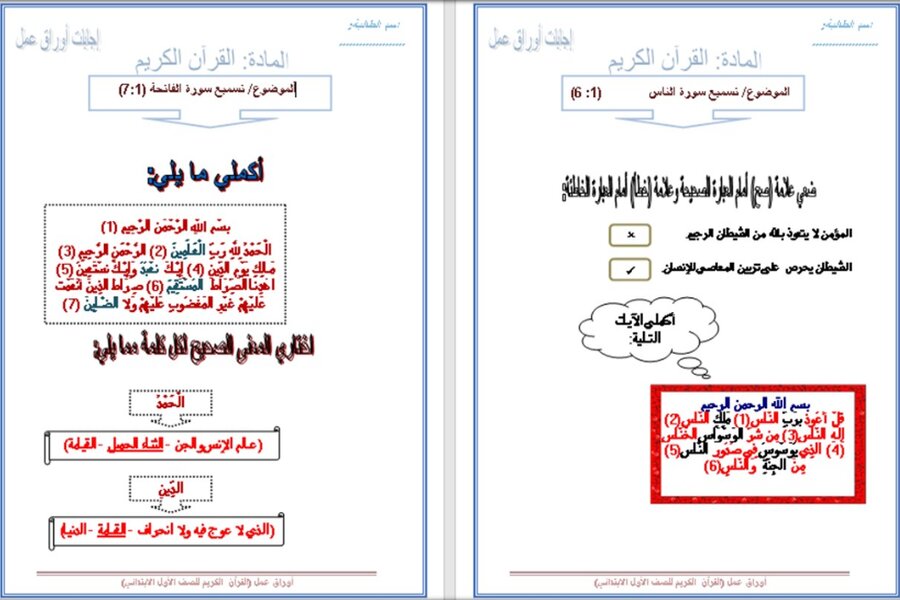 اسم الطالبة:
إجابات أوراق عمل
المادة: القرآن الكريم
الموضوع/ تسميع سورة الناس (1: 6)
ضعي علامة (صح) أمام العبارة الصحيحة وعلامة (خطأ) أمام العبارة الخاطئة:
المؤمن لا يتعوذ بالله من الشيطان الرجيم. ×
الشيطان يحرص على تزيين المعاصي للإنسان. ✓
أكملي الآيات
التالية:
بسم الله الرحمن الرحيم
قُلْ أَعُوذُ بِرَبِّ النَّاسِ (1) مَلِكِ النَّاسِ (2)
إِلَهِ النَّاسِ (3) مِن شَرِّ الْوَسْوَاسِ الْخَنَّاسِ
(4) الَّذِي يُوَسْوِسُ فِي صُدُورِ النَّاسِ (5)
مِنَ الْجِنَّةِ وَالنَّاسِ (6)
أوراق عمل (القرآن الكريم للصف الأول الابتدائي)
اسم الطالبة:
إجابات أوراق عمل
المادة: القرآن الكريم
الموضوع/ تسميع سورة الفاتحة (1:7)
أكملي ما يلي:
بِسْمِ اللهِ الرَّحْمَنِ الرَّحِيمِ (1)
الْحَمْدُ لِلَّهِ رَبِّ الْعَلَمِينَ (2) الرَّحْمَنِ الرَّحِيمِ (3)
مَلِكِ يَوْمِ الدِّينِ (4) إِيَّاكَ نَعْبُدُ وَإِيَّاكَ نَسْتَعِينُ (5)
اهْدِنَا الصِّرَاطَ الْمُسْتَقِيمَ (6) صِرَاطَ الَّذِينَ أَنْعَمْتَ
عَلَيْهِمْ غَيْرِ الْمَغْضُوبِ عَلَيْهِمْ وَلَا الضَّالِّينَ (7)
اختاري المعنى الصحيح لكل كلمة مما يلي:
الْحَمْدُ
(عالم الإنس والجن - الثناء الجميل - القيامة)
الدِّينِ
(الذي لا عوج فيه ولا انحراف - القيامة - الدنيا)
أوراق عمل (القرآن الكريم للصف الأول الابتدائي)